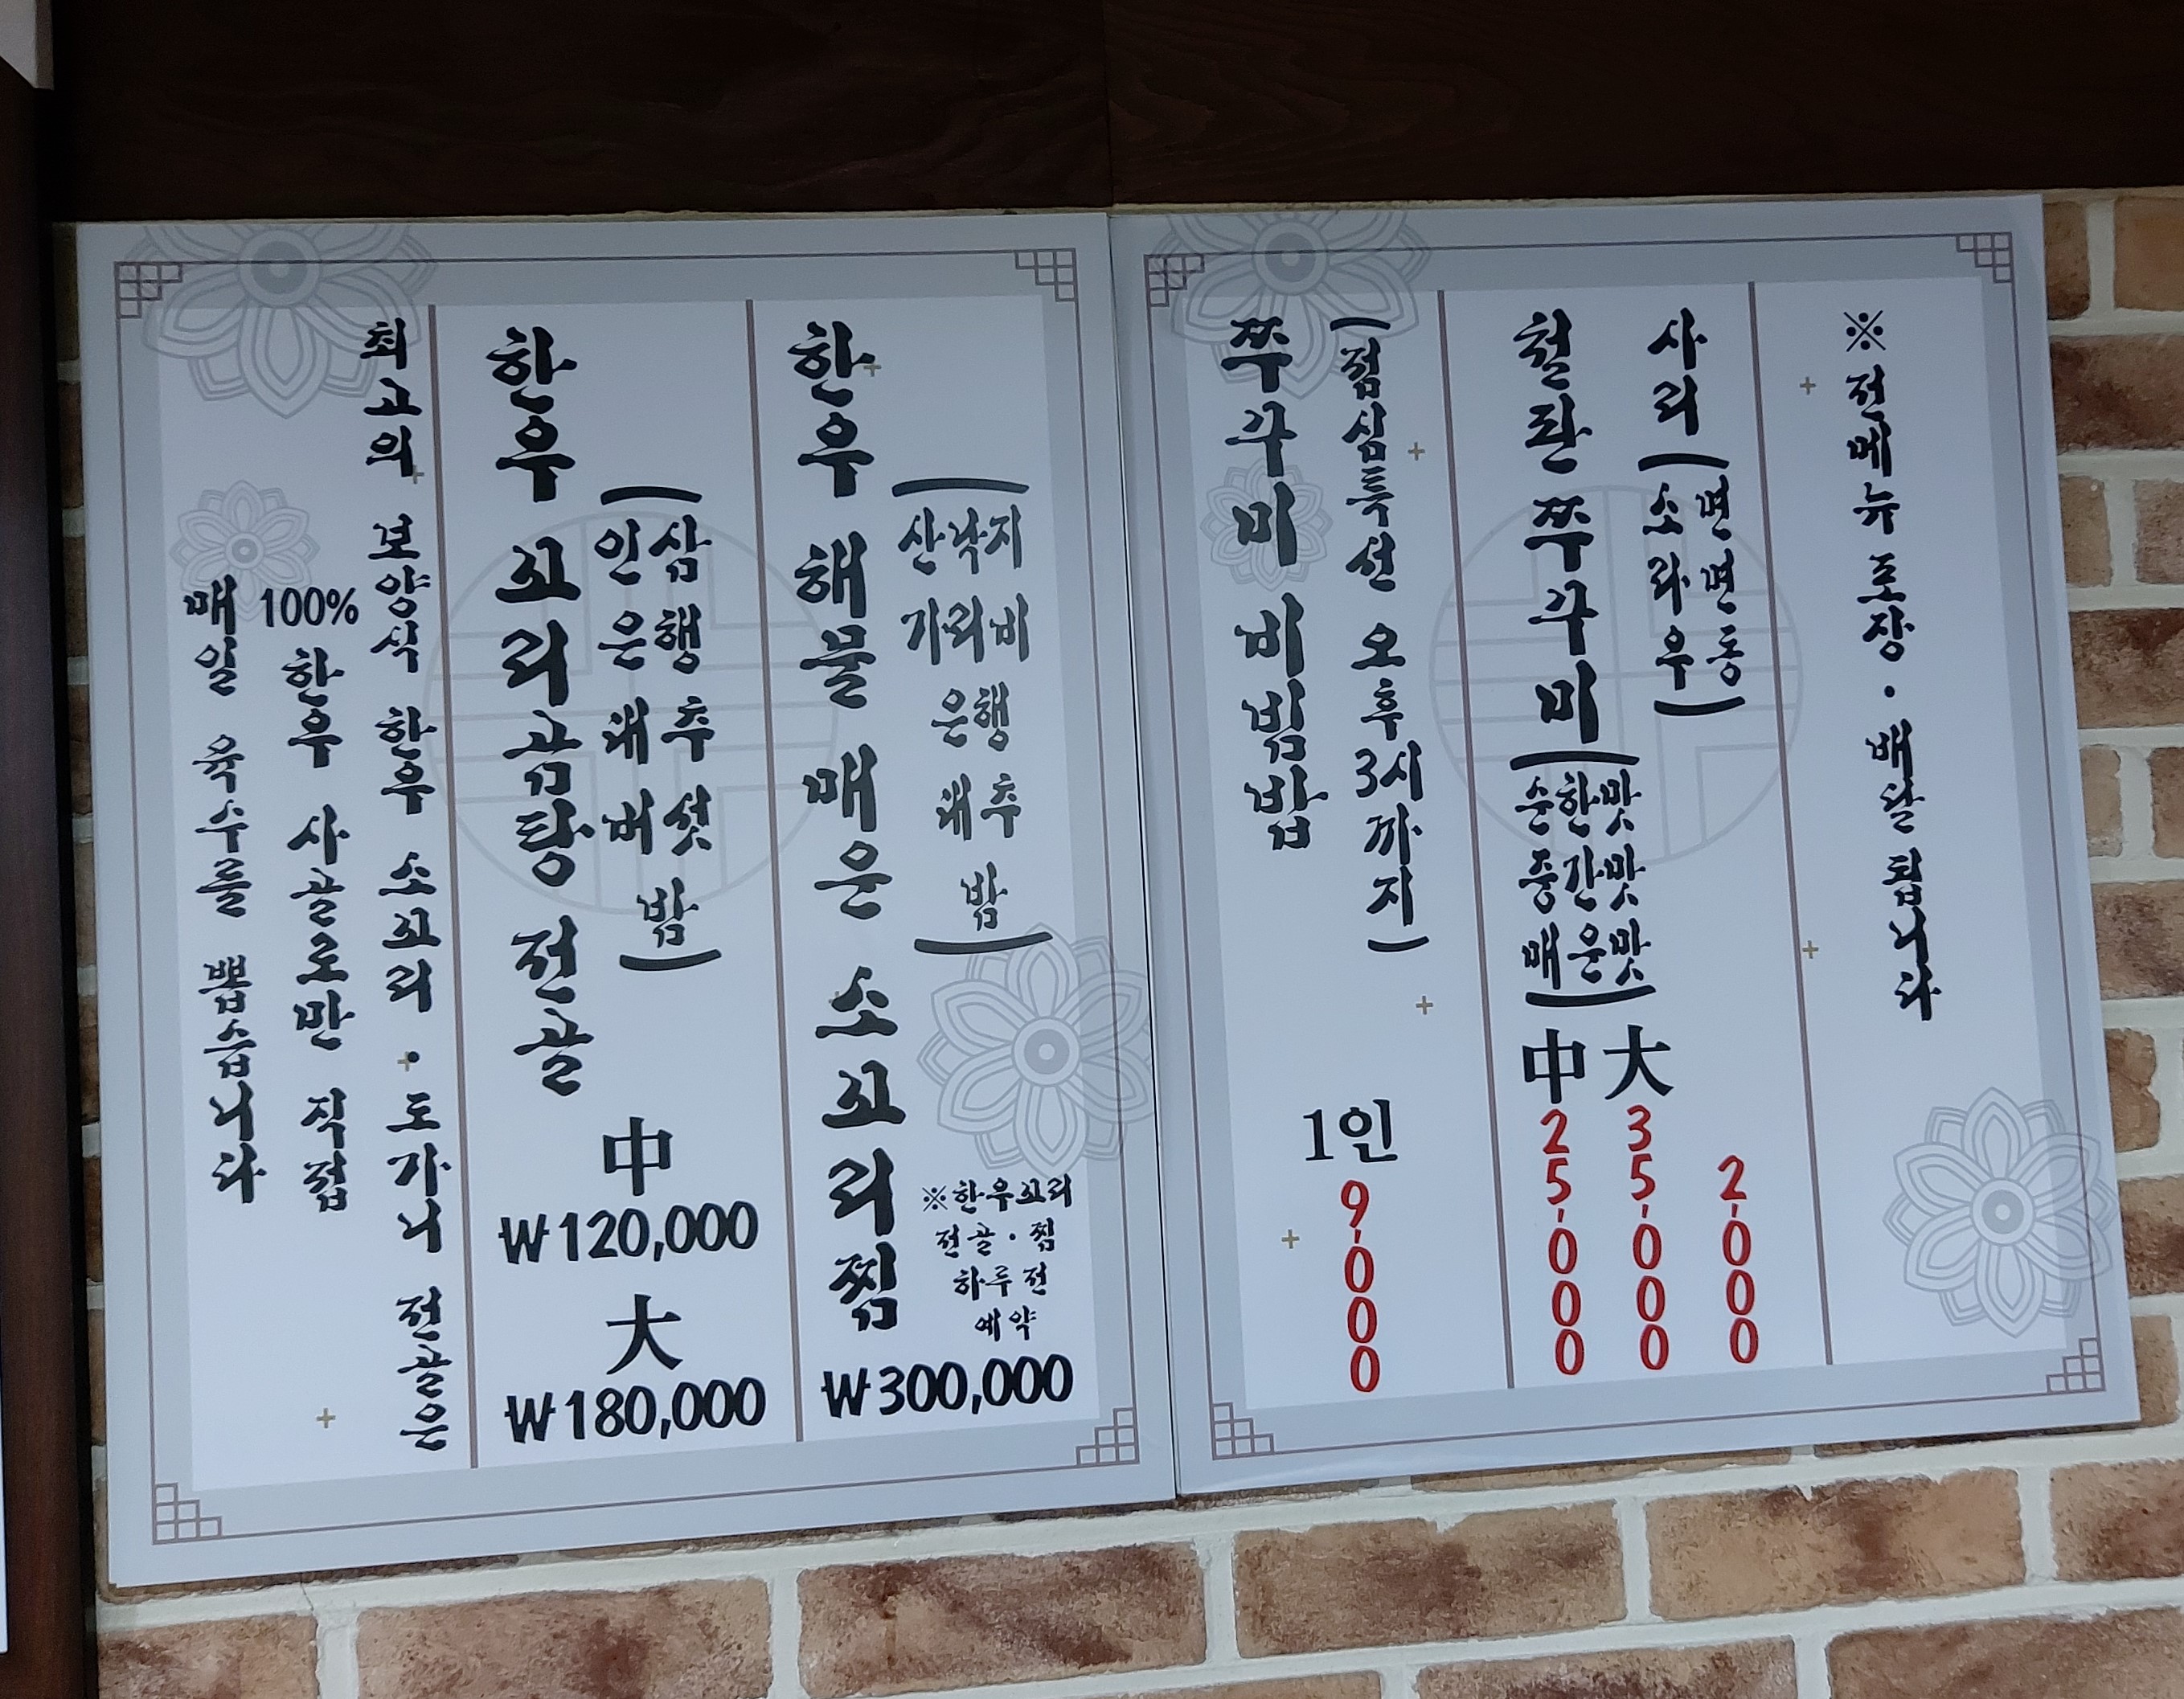 최고의 보양식 한우 소꼬리 · 도가니 전골은
100% 한우 사골로만 직접
매일 육수를 뽑습니다
한우 꼬리곰탕 전골
(인삼
은행
대추
버섯
밤)
中
₩120,000
大
₩180,000
한우 해물 매운 소꼬리찜
(산낙지
가리비
은행
대추
밤)
※한우꼬리
전골 · 찜
하루 전
예약
₩300,000
쭈꾸미 비빔밥
(점심특선 오후 3시까지)
1인
9,000
철판 쭈꾸미
(순한맛
중간맛
매운맛)
中 25,000
大 35,000
사리
(소면
라면
우동)
2,000
※전메뉴 포장 · 배달 됩니다